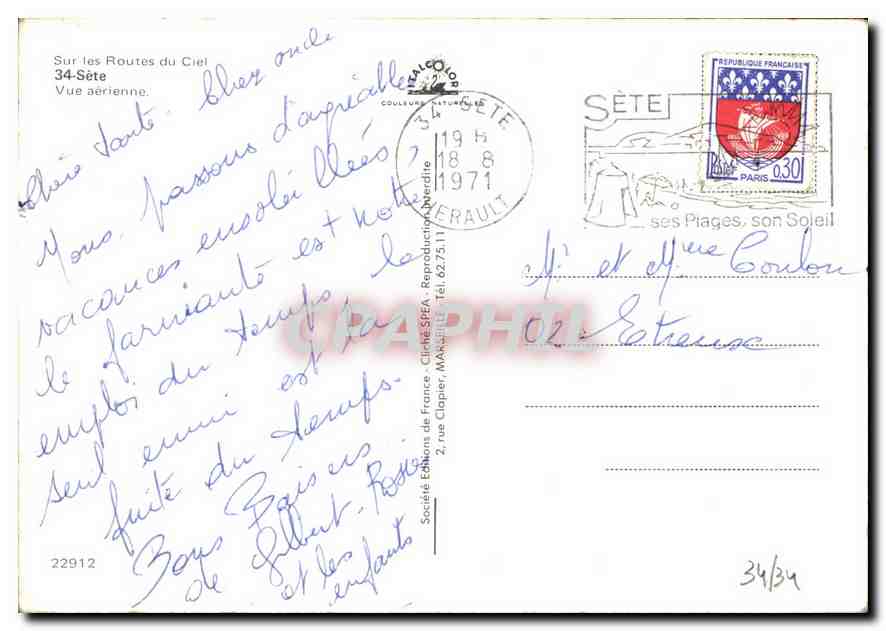 Sur les Routes du Ciel
34-Sète
Vue aérienne.
Chère Tante. Cher oncle
Nous passons d'agréables
vacances ensoleillées,
le farniente est notre
emploi du temps le
seul ennui est la
fuite du temps.
Bons Baisers
de Gilbert. Rosie
et les
enfants
22912
ITALCOLOR
COULEURS NATURELLES
Société Editions de France - Cliché SPEA - Reproduction interdite
2, rue Clapier, MARSEILLE - Tél. 62.75.11
34 SETE
19 H
18-8
1971
HERAULT
SÈTE
ses Plages, son Soleil
REPUBLIQUE FRANÇAISE
POSTES
0,30
PARIS
Mr et Mme Coulon
02 Etreux
34/34
CPAPHIL